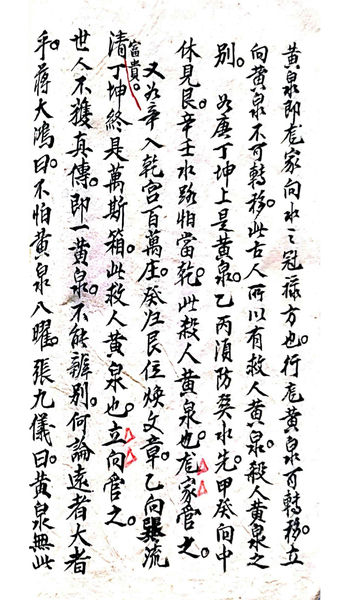 黃泉即龙家向水之冠祿方也。行龙黃泉可轉移。立
向黃泉不可轉移。此古人所以有救人黃泉。殺人黃泉之
別。如庚丁坤上是黃泉。乙丙須防巽水先。甲癸向中
休見艮。辛壬水路怕當乾。此殺人黃泉也。龙家管之。
又如辛入乾宮百萬庄。癸归艮位煥文章。乙向巽流
清富貴。丁坤終是萬斯箱。此救人黃泉也。立向管之。
世人不獲真傳。即一黃泉。不能辨別。何論遠者大者
乎。蔣大鴻曰。不怕黃泉八曜。張九儀曰。黃泉無此